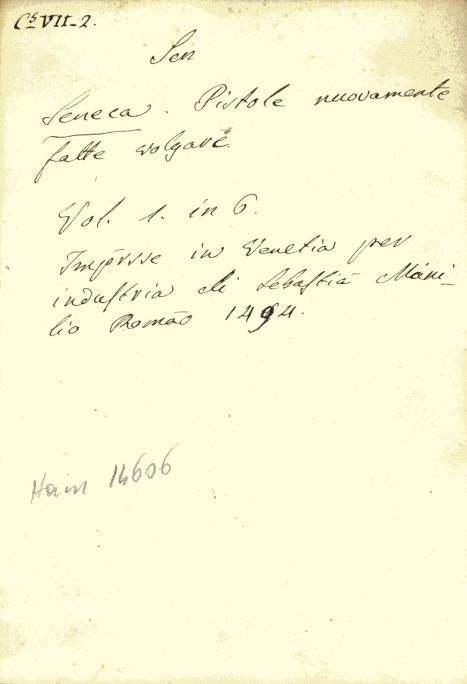 Cʰ VII-2.
Sen
Seneca. Pistole nuovamente
fatte volgare.
Vol. 1. in 6.
Impr̄sse in Venetia per
industria di Sebastiā Mani-
lio Romāo 1494.
Hain 14606